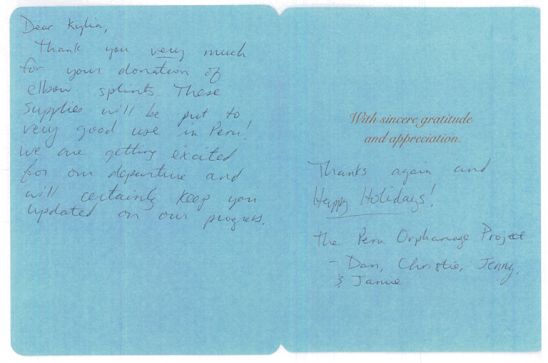 Dear Kylia,
Thank you very much
for your donation of
elbow splints. These
supplies will be put to
very good use in Peru!
We are getting excited
for our departure and
will certainly keep you
updated on our progress.
With sincere gratitude
and appreciation.
Thanks again and
Happy Holidays!
The Peru Orphanage Project
- Dan, Christie, Jenny,
& Jamie